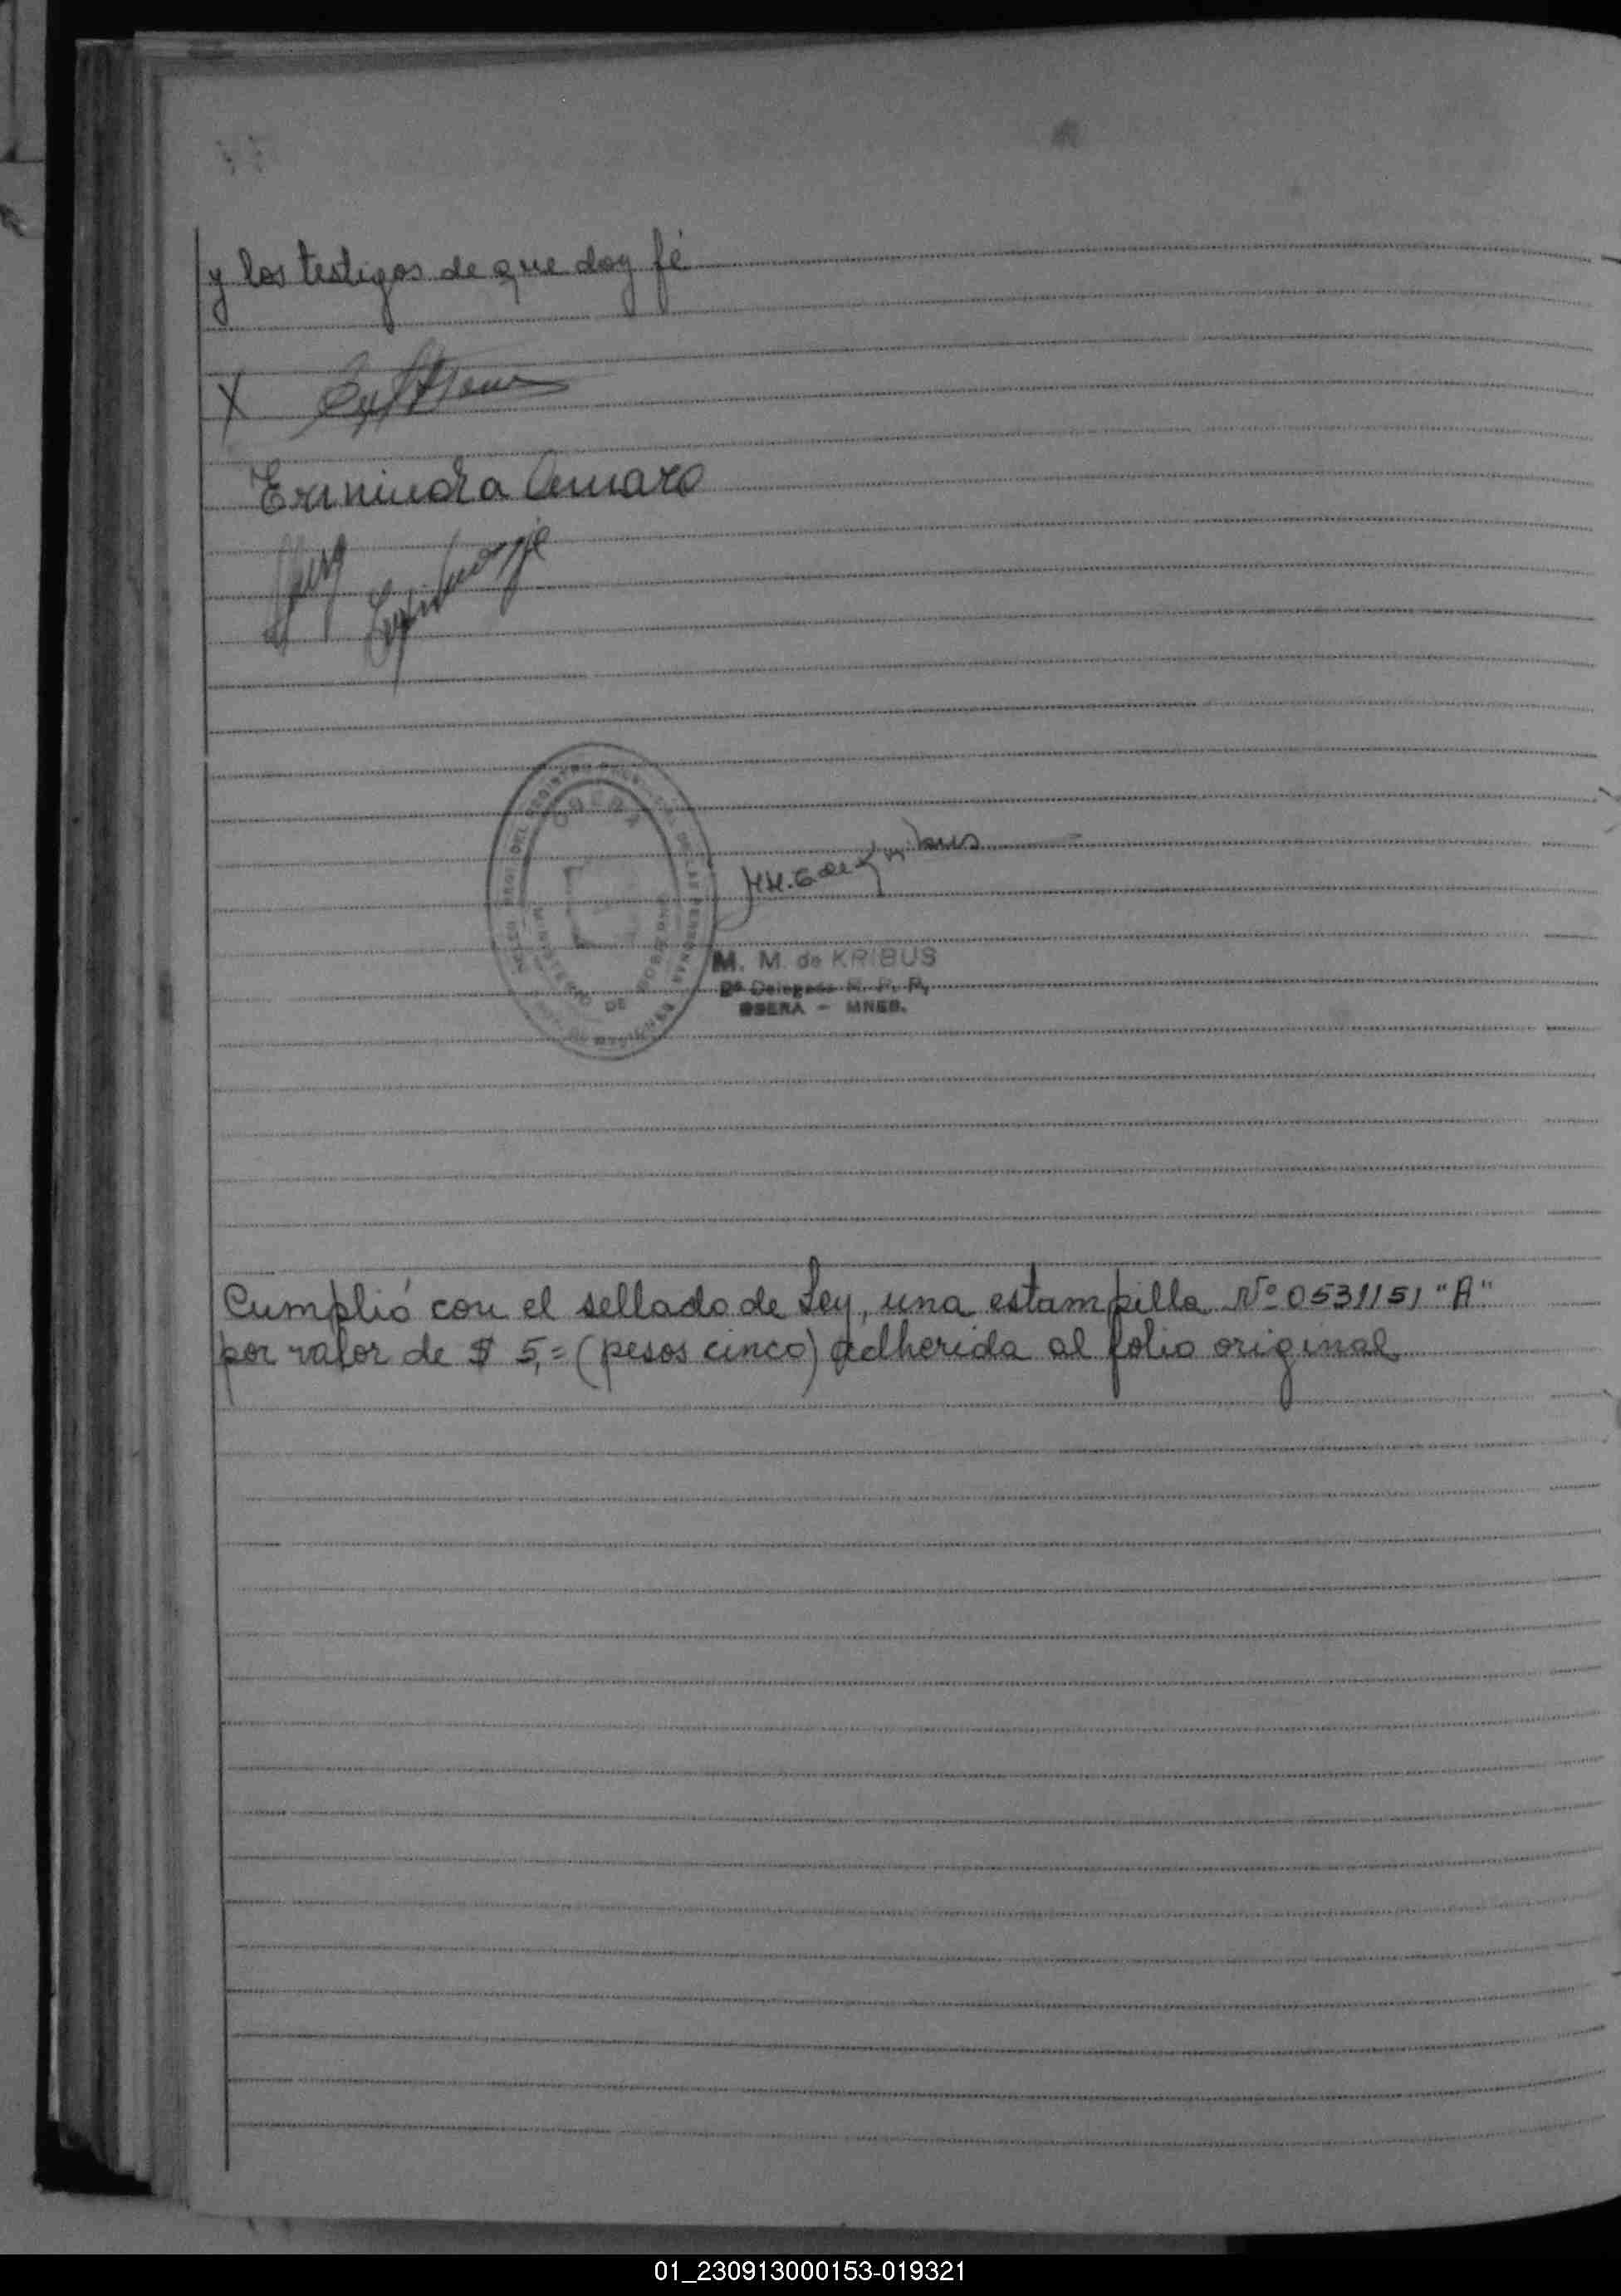 y los testigos de que doy fé
X
Erminda Amaro
DEL REGISTRO
OBERA
MINISTERIO DE GOBIERNO
M. M. de KRIBUS
Delegada R. P. P.
OBERA - MNES.
Cumplió con el sellado de Ley, una estampilla Nº 0531151 "A"
por valor de $ 5,= (pesos cinco) adherida al folio original
01_230913000153-019321